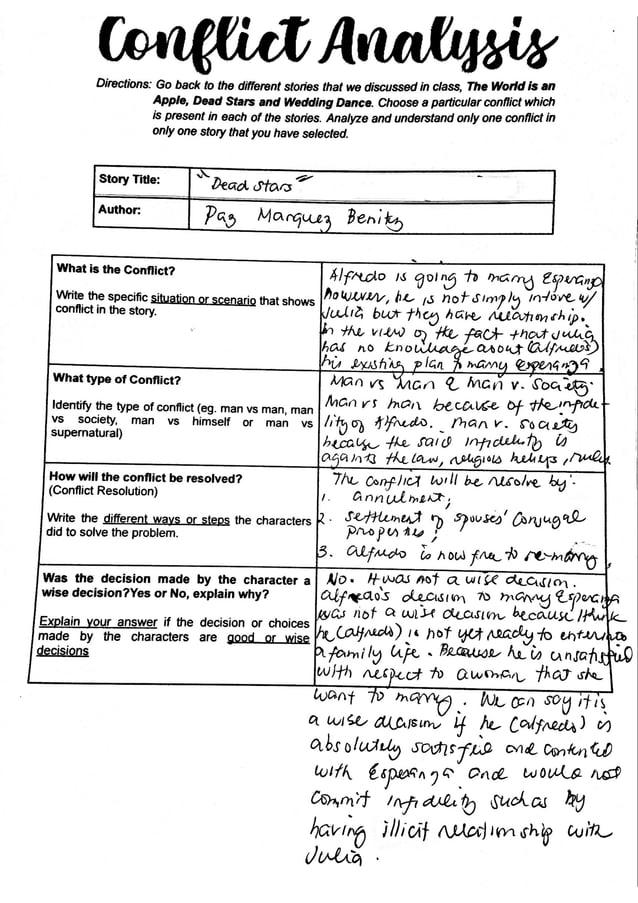 Conflict Analysis
Directions: Go back to the different stories that we discussed in class, The World is an
Apple, Dead Stars and Wedding Dance. Choose a particular conflict which
is present in each of the stories. Analyze and understand only one conflict in
only one story that you have selected.
Story Title:
"Dead Stars"
Author:
Paz Marquez Benitez
What is the Conflict?
Write the specific situation or scenario that shows
conflict in the story.
Alfredo is going to marry Esperanza
however, he is not simply inlove w/
Julia but they have relationship.
In the view of the fact that Julia
has no knowledge about (alfredo's)
his existing plan to marry esperanza
What type of Conflict?
Identify the type of conflict (eg. man vs man, man
vs society, man vs himself or man vs
supernatural)
Man vs Man & Man v. Society.
Man vs man because of the infide-
lity of Alfredo. Man v. society
because the said infidelity is
againts the law, religious beliefs, rules
How will the conflict be resolved?
(Conflict Resolution)
Write the different ways or steps the characters
did to solve the problem.
The conflict will be resolve by:
1. annulment;
2. settlement of spouses' conjugal
properties;
3. alfredo is now free to re-marry
Was the decision made by the character a
wise decision?Yes or No, explain why?
Explain your answer if the decision or choices
made by the characters are good or wise
decisions
No. It was not a wise decision.
alfredo's decision to marry Esperanza
was not a wise decision because I think
he (alfredo) is not yet ready to enter into
a family life. Because he is unsatisfied
with respect to a woman that she
want to marry. We can say it is
a wise decision if he (alfredo) is
absolutely satisfied and contented
with Esperanza and would not
commit infidelity such as by
having illicit relationship with
Julia.